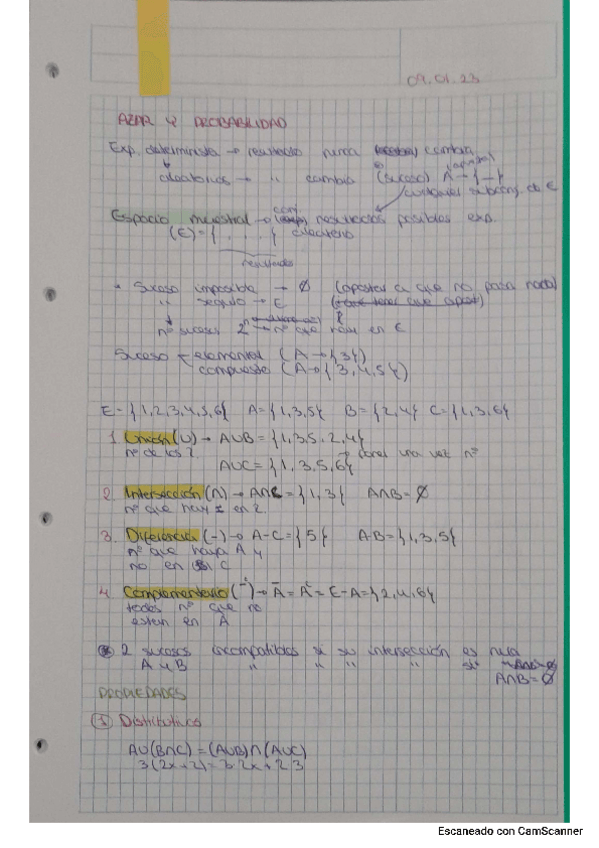 09.01.23
AZAR Y PROBABILIDAD
Exp. determinista → resultado nunca cambia
aleatorios → " cambia (suceso) A → { — }
cualquier subconj. de E
Espacio muestral → conj. resultados posibles exp.
(E) = { . . . . } aleatorio
resultados
* Suceso imposible → ∅ (apostar a que no pasa nada)
" seguro → E
nº sucesos 2ⁿ → nº que hay en E
Suceso elemental (A → {3})
compuesto (A → {3,4,5})
E = {1,2,3,4,5,6} A = {1,3,5} B = {2,4} C = {1,3,6}
1. Unión (∪) → A∪B = {1,3,5,2,4}
nº de los 2 una vez nº
A∪C = {1,3,5,6}
2. Intersección (∩) → A∩C = {1,3} A∩B = ∅
nº que hay en 2
3. Diferencia (-) → A-C = {5} A-B = {1,3,5}
nº que haya A y
no en C
4. Complementario (⁻) → Ā = Aᶜ = E-A = {2,4,6}
todos nº que no
esten en A
2 sucesos incompatibles si su intersección es nula
A y B " " " " si
A∩B = ∅
PROPIEDADES
Distributiva
A∪(B∩C) = (A∪B)∩(A∪C)
3(2x+2) = 3·2x+2·3
Escaneado con CamScanner